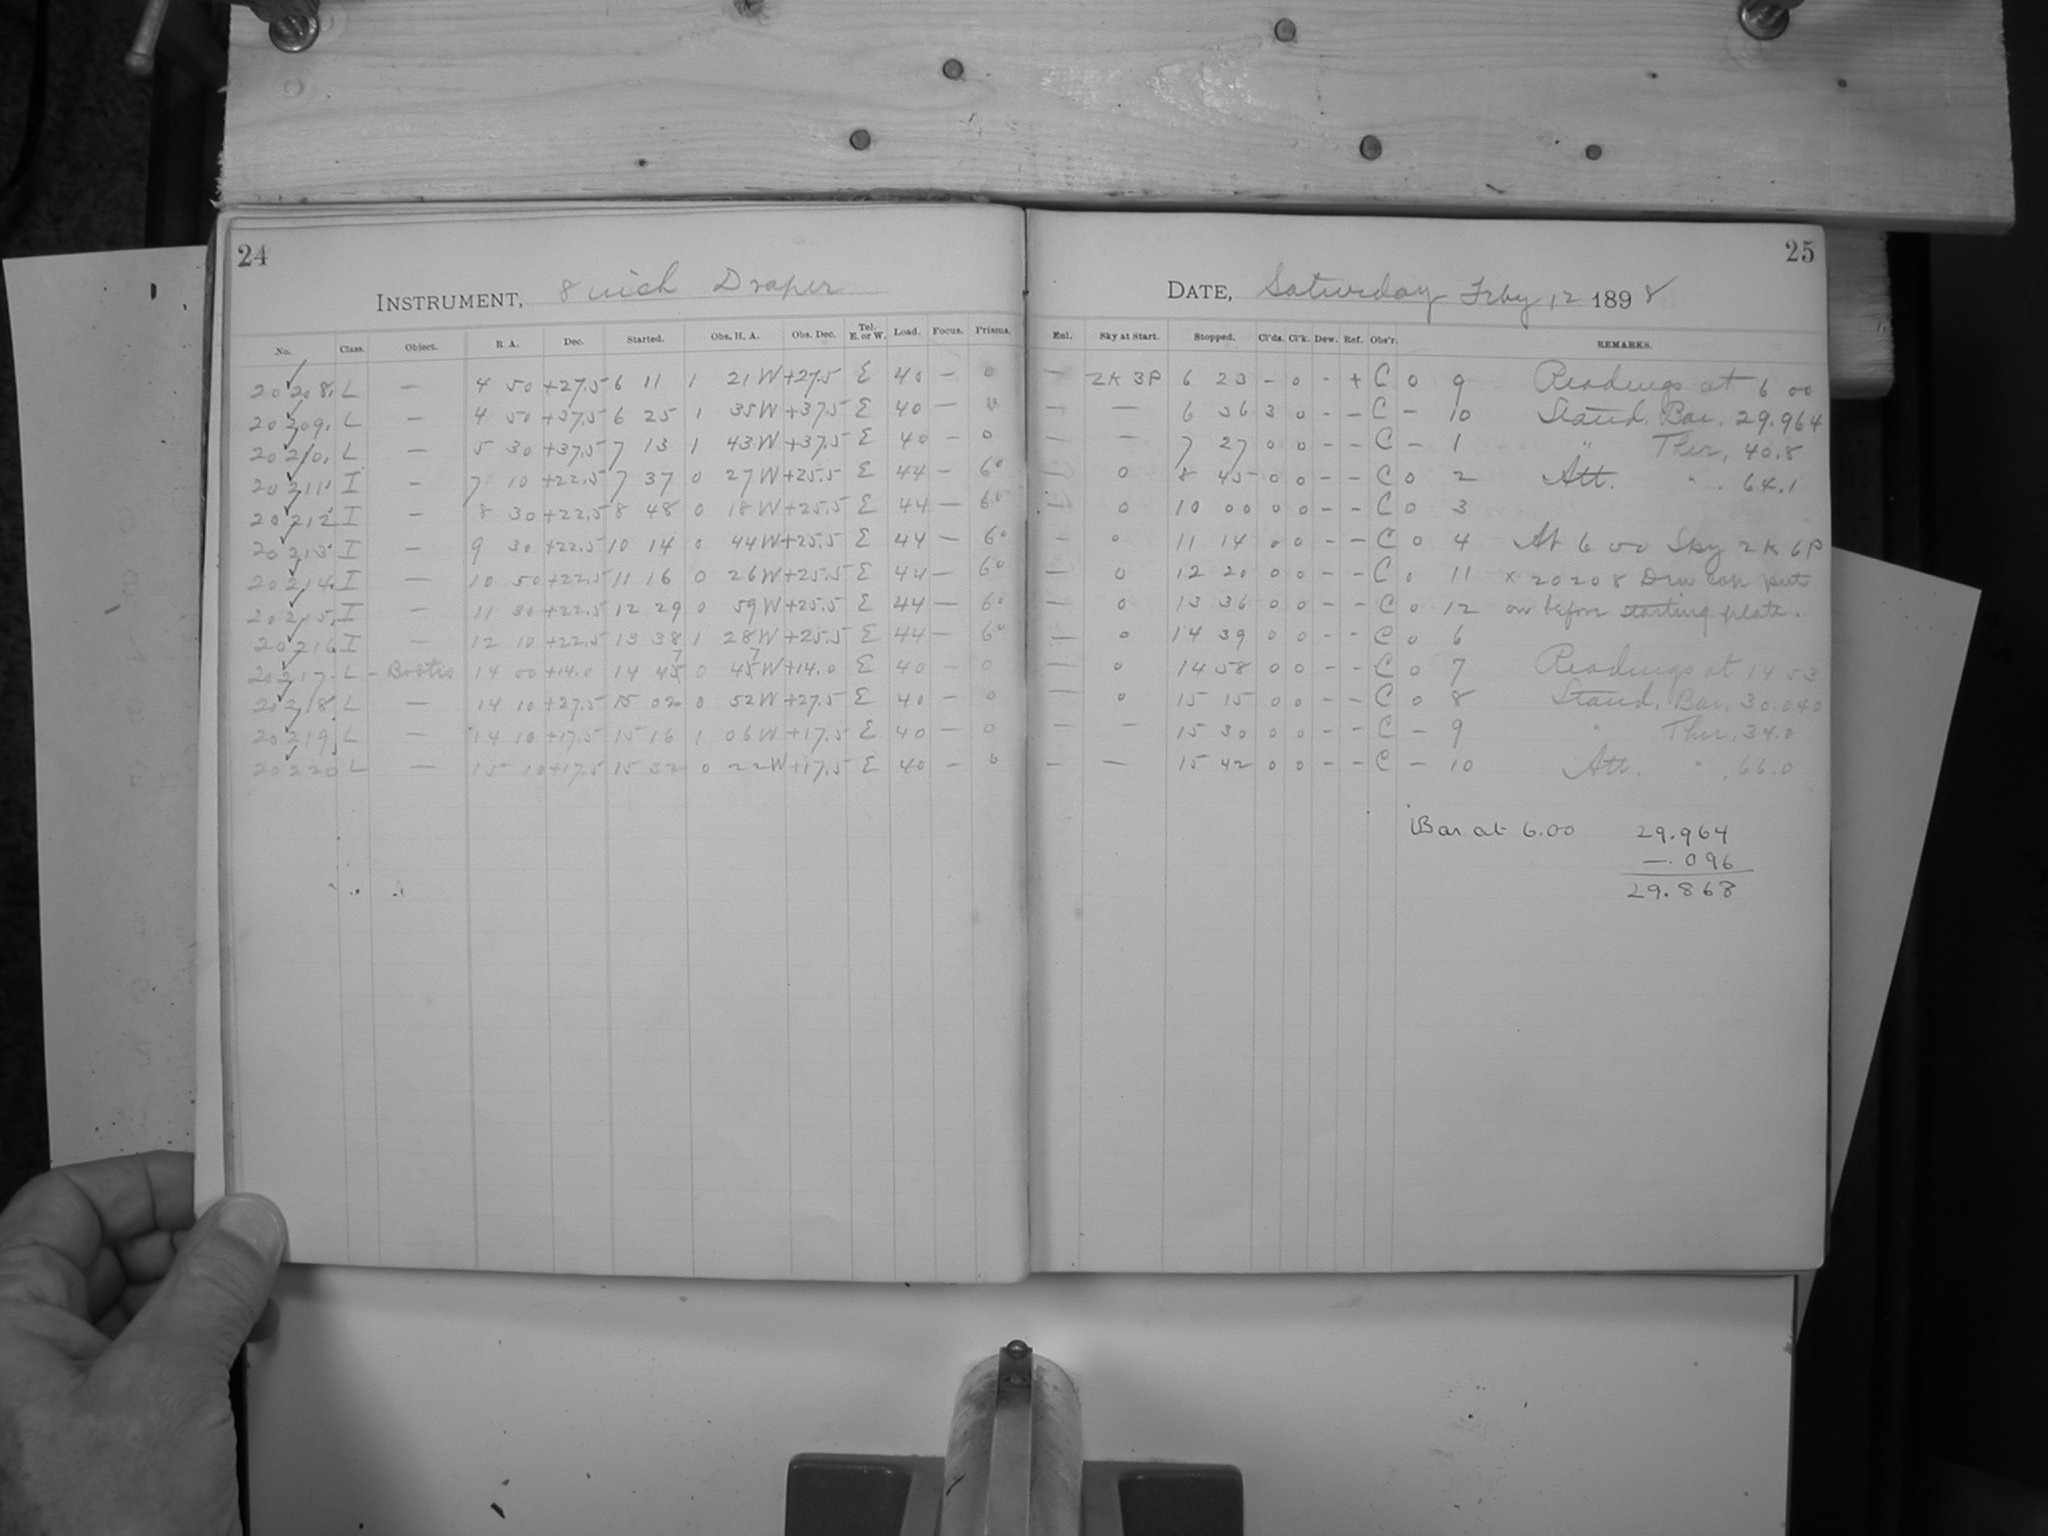 24
INSTRUMENT, 8 inch Draper
No. Class. Object. R. A. Dec. Started. Obs. H. A. Obs. Dec. Tel. E. or W. Load. Focus. Prisms.
20208. L — 4 50 +27.5 6 11 1 21W +27.5 E 40 — 0
20209. L — 4 50 +37.5 6 25 1 35W +37.5 E 40 — 0
20210. L — 5 30 +37.5 7 13 1 43W +37.5 E 40 — 0
20211. I — 7 10 +22.5 7 37 0 27W +25.5 E 44 — 6°
20212 I — 8 30 +22.5 8 48 0 18W +25.5 E 44 — 6°
20213. I — 9 30 +22.5 10 14 0 44W +25.5 E 44 — 6°
20214. I — 10 50 +22.5 11 16 0 26W +25.5 E 44 — 6°
20215. I — 11 30 +22.5 12 29 0 59W +25.5 E 44 — 6°
20216 I — 12 10 +22.5 13 38 1 28W +25.5 E 44 — 6°
20217. L - Bootis 14 00 +14.0 14 45 7 0 45 7 W +14.0 E 40 — 0
20218. L — 14 10 +27.5 15 02 0 52W +27.5 E 40 — 0
20219. L — 14 10 +17.5 15 16 1 06W +17.5 E 40 — 0
20220 L — 15 10 +17.5 15 32 0 22W +17.5 E 40 — 0
25
DATE, Saturday Feby 12 1898
Enl. Sky at Start. Stopped. Cl'ds. Cl'k. Dew. Ref. Obs'r. REMARKS.
— 2K 3P 6 23 - 0 - + C 0 9 Readings at 6 00
— — 6 36 3 0 - - C - 10 Stand. Bar. 29.964
— — 7 27 0 0 - - C - 1 " Ther, 40.8
— 0 8 45 0 0 - - C 0 2 Att. " . 64.1
— 0 10 00 0 0 - - C 0 3
— 0 11 14 0 0 - - C 0 4 At 6 00 Sky 2K 6P
— 0 12 20 0 0 - - C 0 11 x 20208 Dew cap put
— 0 13 36 0 0 - - C 0 12 on before starting plate.
— 0 14 39 0 0 - - C 0 6
— 0 14 58 0 0 - - C 0 7 Readings at 14 53
— 0 15 15 0 0 - - C 0 8 Stand. Bar. 30.040
— — 15 30 0 0 - - C - 9 " Ther. 34.0
— — 15 42 0 0 - - C - 10 Att. " . 66.0
Bar at 6.00 29.964
—.096
29.868